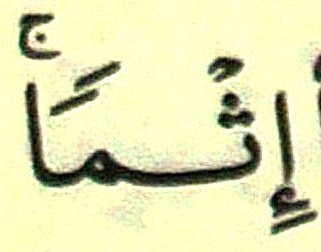 إِثْمًاۚ